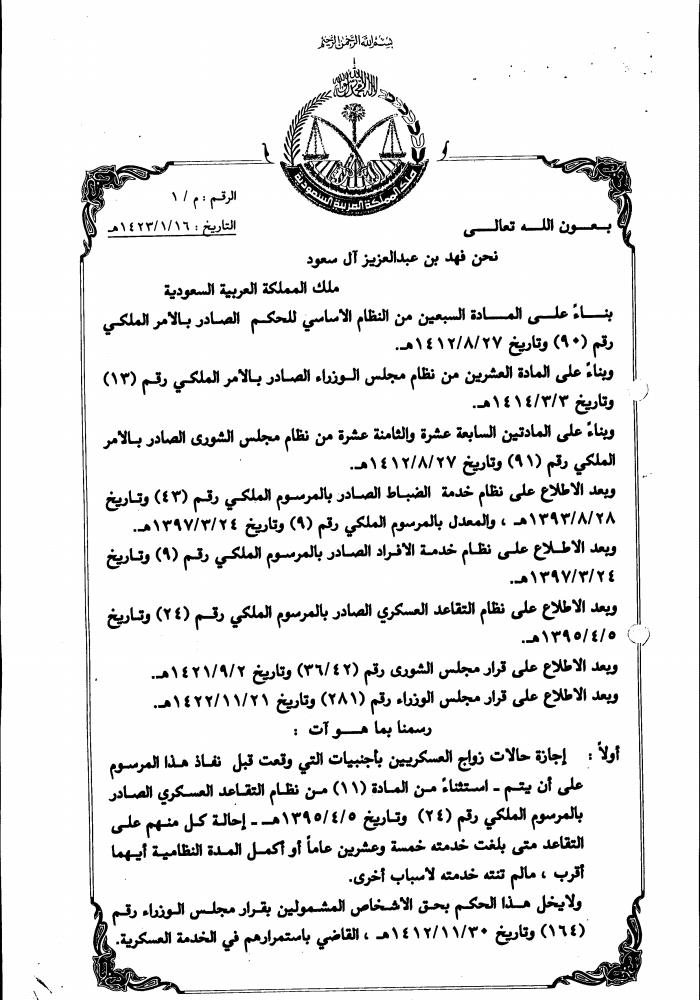 بسم الله الرحمن الرحيم
لا إله إلا الله محمد رسول الله
ملك المملكة العربية السعودية
الرقم : م / ١
التاريخ : ١٤٢٣/١/١٦هـ
بعون الله تعالى
نحن فهد بن عبدالعزيز آل سعود
ملك المملكة العربية السعودية
بناءً على المادة السبعين من النظام الأساسي للحكم الصادر بالأمر الملكي
رقم (٩٠) وتاريخ ١٤١٢/٨/٢٧هـ.
وبناءً على المادة العشرين من نظام مجلس الوزراء الصادر بالأمر الملكي رقم (١٣)
وتاريخ ١٤١٤/٣/٣هـ.
وبناءً على المادتين السابعة عشرة والثامنة عشرة من نظام مجلس الشورى الصادر بالأمر
الملكي رقم (٩١) وتاريخ ١٤١٢/٨/٢٧هـ.
وبعد الاطلاع على نظام خدمة الضباط الصادر بالمرسوم الملكي رقم (٤٣) وتاريخ
١٣٩٣/٨/٢٨هـ ، والمعدل بالمرسوم الملكي رقم (٩) وتاريخ ١٣٩٧/٣/٢٤هـ.
وبعد الاطلاع على نظام خدمة الأفراد الصادر بالمرسوم الملكي رقم (٩) وتاريخ
١٣٩٧/٣/٢٤هـ.
وبعد الاطلاع على نظام التقاعد العسكري الصادر بالمرسوم الملكي رقم (٢٤) وتاريخ
١٣٩٥/٤/٥هـ.
وبعد الاطلاع على قرار مجلس الشورى رقم (٣٦/٤٢) وتاريخ ١٤٢١/٩/٢هـ.
وبعد الاطلاع على قرار مجلس الوزراء رقم (٢٨١) وتاريخ ١٤٢٢/١١/٢١هـ.
رسمنا بما هو آت :
أولاً : إجازة حالات زواج العسكريين بأجنبيات التي وقعت قبل نفاذ هذا المرسوم
على أن يتم - استثناءً من المادة (١١) من نظام التقاعد العسكري الصادر
بالمرسوم الملكي رقم (٢٤) وتاريخ ١٣٩٥/٤/٥هـ - إحالة كل منهم على
التقاعد متى بلغت خدمته خمسة وعشرين عاماً أو أكمل المدة النظامية أيهما
أقرب ، مالم تنته خدمته لأسباب أخرى.
ولايخل هذا الحكم بحق الأشخاص المشمولين بقرار مجلس الوزراء رقم
(١٦٤) وتاريخ ١٤١٢/١١/٣٠هـ ، القاضي باستمرارهم في الخدمة العسكرية.